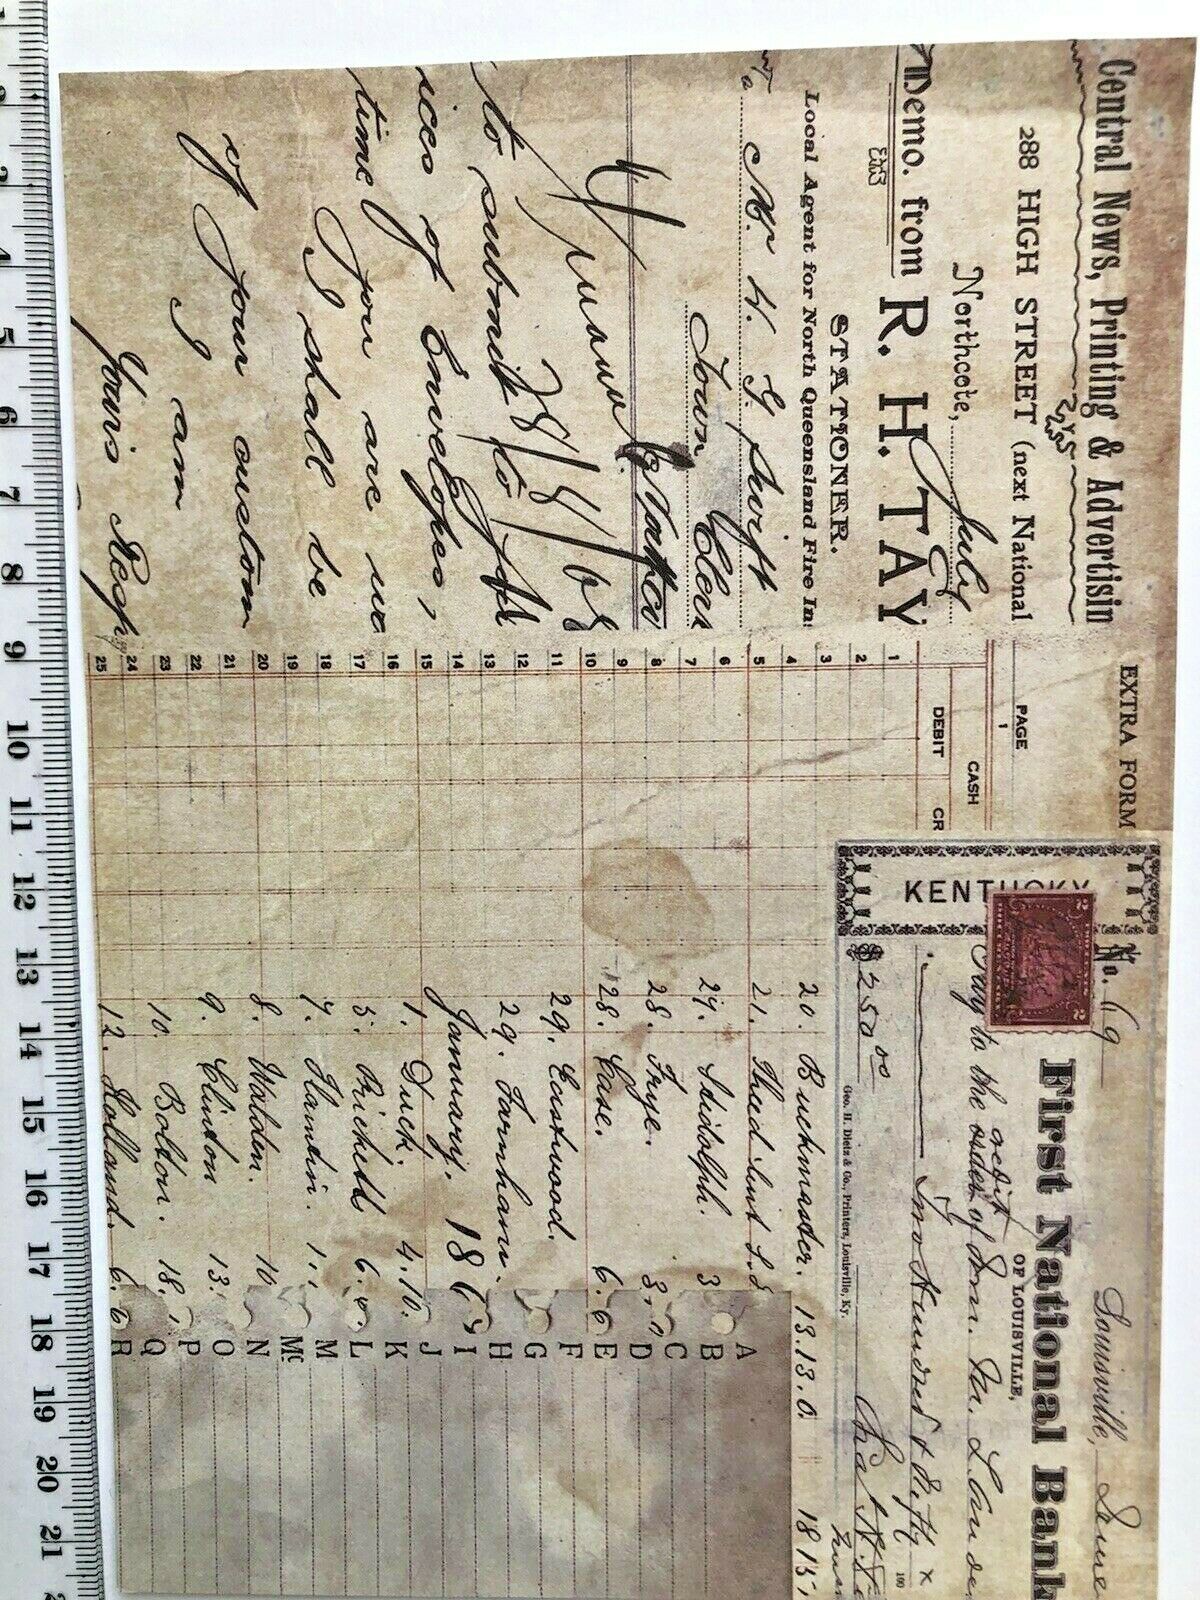 Central News, Printing & Advertisin
288 HIGH STREET (next National
Northcote,
July
Demo. from R. H. TAY
STATIONER.
Local Agent for North Queensland Fire Ins
To Mr. W. G. Swift
Town Clerk
to submit to
ices of Envelopes,
time you are
I shall be
of your custom
I am
Yours Resp
EXTRA FORM
PAGE
1
CASH
DEBIT CR
1
2
3
4
5
6
7
8
9
10
11
12
13
14
15
16
17
18
19
20
21
22
23
24
25
KENTUCKY
2 2
No. 69
Louisville,
First National Bank
OF LOUISVILLE,
Pay to the order of
Two Hundred & Fifty x
$250 00
190
Geo. H. Dietz & Co., Printers, Louisville, Ky.
20. Buckmaster. 13.13.0. 18 15
21.
27. Stidolph. 3
28. Frye. 3.0
28. Case. 6.6
29. Eastwood.
29. Farnham.
January, 186
1. Duck. 4.10.
5. Pricketts 6.
7. Hamlin. 1
8. Walden. 10
9. Clinton 13
10. Bolton. 18.
12. Holland. 6.6
A
B
C
D
E
F
G
H
I
J
K
L
M
Mc
N
O
P
Q
R
1
2
3
4
5
6
7
8
9
10
11
12
13
14
15
16
17
18
19
20
21
2